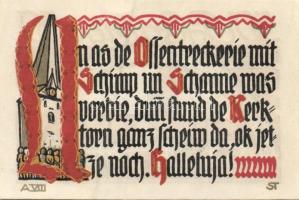 Un as de Ossentreckerie mit
Schimp un Schanne was
voerbie, dunn stund de Kerk-
torn ganz scheiw da, ok jet-
ze noch. Halleluja!
A. VIII
ST